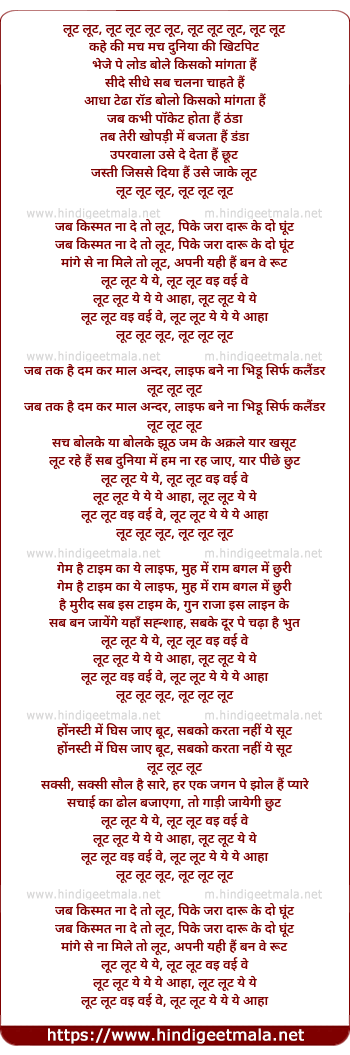 लूट लूट, लूट लूट लूट लूट, लूट लूट लूट, लूट लूट
कहे की मच मच दुनिया की खिटपिट
भेजे पे लोड बोले किसको मांगता हैं
सीदे सीधे सब चलना चाहते हैं
आधा टेढा रॉड बोलो किसको मांगता हैं
जब कभी पॉकेट होता हैं ठंडा
तब तेरी खोपड़ी में बजता हैं डंडा
उपरवाला उसे दे देता हैं छूट
जस्ती जिससे दिया हैं उसे जाके लूट
लूट लूट लूट, लूट लूट लूट
www.hindigeetmala.net m.hindigeetmala.net
जब किस्मत ना दे तो लूट, पिके जरा दारू के दो घूंट
जब किस्मत ना दे तो लूट, पिके जरा दारू के दो घूंट
मांगे से ना मिले तो लूट, अपनी यही हैं बन वे रूट
लूट लूट ये ये, लूट लूट वइ वई वे
लूट लूट ये ये ये आहा, लूट लूट ये ये
लूट लूट वइ वई वे, लूट लूट ये ये ये आहा
लूट लूट लूट, लूट लूट लूट
www.hindigeetmala.net m.hindigeetmala.net
जब तक है दम कर माल अन्दर, लाइफ बने ना भिडू सिर्फ कलैंडर
लूट लूट लूट
जब तक है दम कर माल अन्दर, लाइफ बने ना भिडू सिर्फ कलैंडर
लूट लूट लूट
सच बोलके या बोलके झूठ जम के अक्रले यार खसूट
लूट रहे हैं सब दुनिया में हम ना रह जाए, यार पीछे छुट
लूट लूट ये ये, लूट लूट वइ वई वे
लूट लूट ये ये ये आहा, लूट लूट ये ये
लूट लूट वइ वई वे, लूट लूट ये ये ये आहा
लूट लूट लूट, लूट लूट लूट
www.hindigeetmala.net m.hindigeetmala.net
गेम है टाइम का ये लाइफ, मुह में राम बगल में छुरी
गेम है टाइम का ये लाइफ, मुह में राम बगल में छुरी
है मुरीद सब इस टाइम के, गुन राजा इस लाइन के
सब बन जायेंगे यहाँ सह्न्शाह, सबके दूर पे चढ़ा है भुत
लूट लूट ये ये, लूट लूट वइ वई वे
लूट लूट ये ये ये आहा, लूट लूट ये ये
लूट लूट वइ वई वे, लूट लूट ये ये ये आहा
लूट लूट लूट, लूट लूट लूट
www.hindigeetmala.net m.hindigeetmala.net
होंनस्टी में घिस जाए बूट, सबको करता नहीं ये सूट
होंनस्टी में घिस जाए बूट, सबको करता नहीं ये सूट
लूट लूट लूट
सक्सी, सक्सी सौल है सारे, हर एक जगन पे झोल हैं प्यारे
सचाई का ढोल बजाएगा, तो गाड़ी जायेगी छुट
लूट लूट ये ये, लूट लूट वइ वई वे
लूट लूट ये ये ये आहा, लूट लूट ये ये
लूट लूट वइ वई वे, लूट लूट ये ये ये आहा
लूट लूट लूट, लूट लूट लूट
www.hindigeetmala.net m.hindigeetmala.net
जब किस्मत ना दे तो लूट, पिके जरा दारू के दो घूंट
जब किस्मत ना दे तो लूट, पिके जरा दारू के दो घूंट
मांगे से ना मिले तो लूट, अपनी यही हैं बन वे रूट
लूट लूट ये ये, लूट लूट वइ वई वे
लूट लूट ये ये ये आहा, लूट लूट ये ये
लूट लूट वइ वई वे, लूट लूट ये ये ये आहा
https://www.hindigeetmala.net